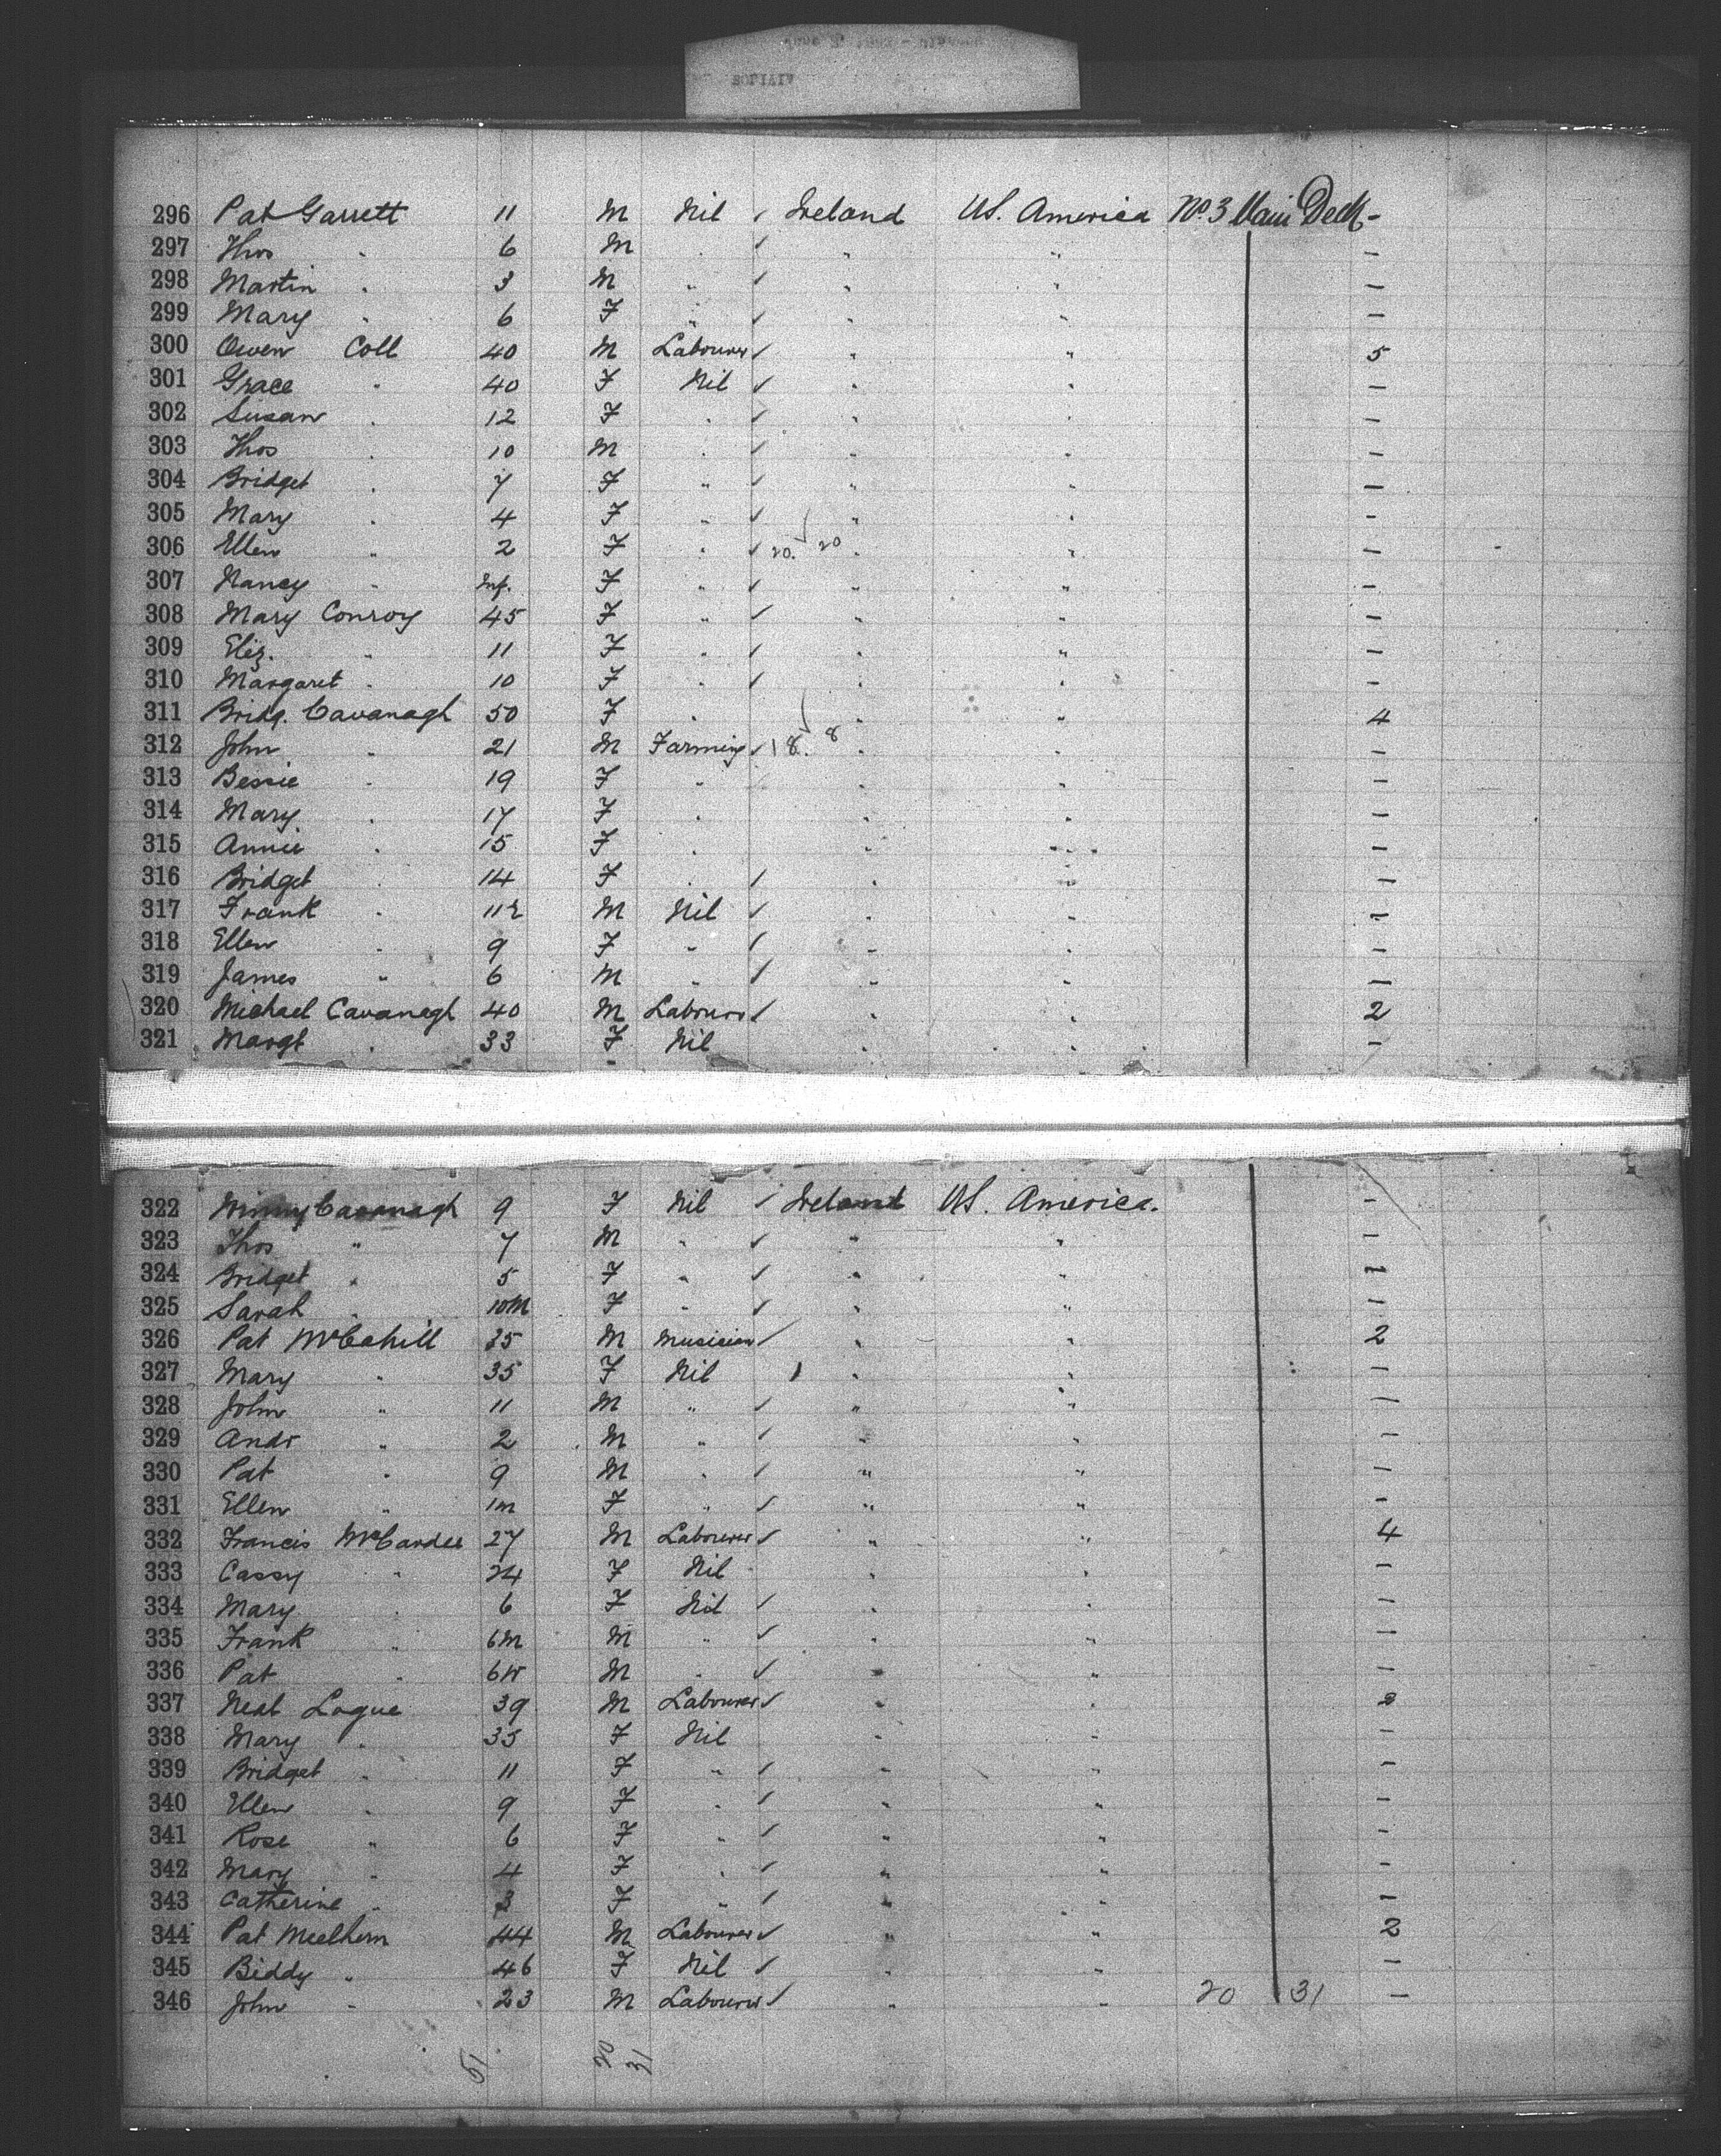 296 Pat Garrett 11 M Nil ✓ Ireland US. America No. 3 Main Deck -
297 Thos " 6 M " ✓ " " -
298 Martin " 3 M " ✓ " " -
299 Mary " 6 F " ✓ " " -
300 Owen Coll 40 M Labourer ✓ " " 5
301 Grace " 40 F Nil ✓ " " -
302 Susan " 12 F " ✓ " " -
303 Thos " 10 M " ✓ " -
304 Bridget " 7 F " ✓ " " -
305 Mary " 4 F " ✓ " " -
306 Ellen " 2 F " ✓ 20. ✓ 20 " " -
307 Nancy " Inf. F " ✓ " " -
308 Mary Conroy 45 F " ✓ " " -
309 Eliz. " 11 F " ✓ " " -
310 Margaret " 10 F " ✓ " " -
311 Bridg. Cavanagh 50 F " " " 4
312 John " 21 M Farming ✓ 18. ✓ 8 " " -
313 Bessie " 19 F " " -
314 Mary " 17 F " " " -
315 Annie " 15 F " " " -
316 Bridget " 14 F " ✓ " " -
317 Frank " 112 M Nil ✓ " " -
318 Ellen " 9 F " ✓ " " -
319 James " 6 M " ✓ " " -
320 Michael Cavanagh 40 M Labourer ✓ " " 2
321 Margt " 33 F Nil " " -
322 Winny Cavanagh 9 F Nil ✓ Ireland US. America. -
323 Thos " 7 M " ✓ " " -
324 Bridget " 5 F " ✓ " " -
325 Sarah " 10M F " ✓ " " -
326 Pat McCahill 35 M Musician ✓ " " 2
327 Mary " 35 F Nil " " -
328 John " 11 M " ✓ " " -
329 Andr " 2 M " ✓ " " -
330 Pat " 9 M " ✓ " " -
331 Ellen " 1m F " ✓ " " -
332 Francis McCardle 27 M Labourer ✓ " " 4
333 Cassy " 24 F Nil " " -
334 Mary " 6 F Nil ✓ " " -
335 Frank " 6M M " ✓ " " -
336 Pat " 6 M " ✓ " " -
337 Neal Logue 39 M Labourer ✓ " " 2
338 Mary " 35 F Nil " " -
339 Bridget " 11 F " ✓ " " -
340 Ellen " 9 F " ✓ " " -
341 Rose " 6 F " ✓ " " -
342 Mary " 4 F " ✓ " " -
343 Catherine " 3 F " ✓ " " -
344 Pat Meelhern 44 M Labourer ✓ " " 2
345 Biddy " 46 F Nil ✓ " " -
346 John " 23 M Labourer ✓ " " 20 31 -
51 20 31